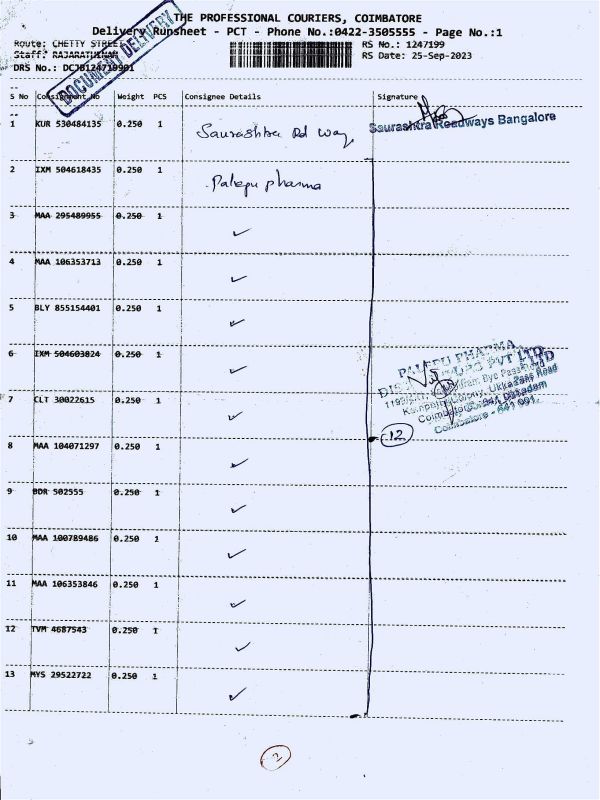 THE PROFESSIONAL COURIERS, COIMBATORE
Delivery Runsheet - PCT - Phone No.:0422-3505555 - Page No.:1
Route: CHETTY STREET
RS No.: 1247199
Staff: RAJARATHINAM
RS Date: 25-Sep-2023
DRS No.: DCJB124719901
DOCUMENT DELIVERY
S No Consignment No Weight PCS Consignee Details Signature
1 KUR 530484135 0.250 1 Saurashtra Rd Way Saurashtra Roadways Bangalore
2 IXM 504618435 0.250 1 Palepu pharma
3 MAA 295489955 0.250 1 ✓
4 MAA 106353713 0.250 1 ✓
5 BLY 855154401 0.250 1 ✓
6 IXM 504603824 0.250 1 ✓
PALEPU PHARMA
PVT LTD
7 CLT 30022615 0.250 1 ✓
Coimbatore - 641 001.
12
8 MAA 104071297 0.250 1 ✓
9 BDR 502555 0.250 1 ✓
10 MAA 100789486 0.250 1 ✓
11 MAA 106353846 0.250 1 ✓
12 TVM 4687543 0.250 1 ✓
13 MYS 29522722 0.250 1 ✓
2